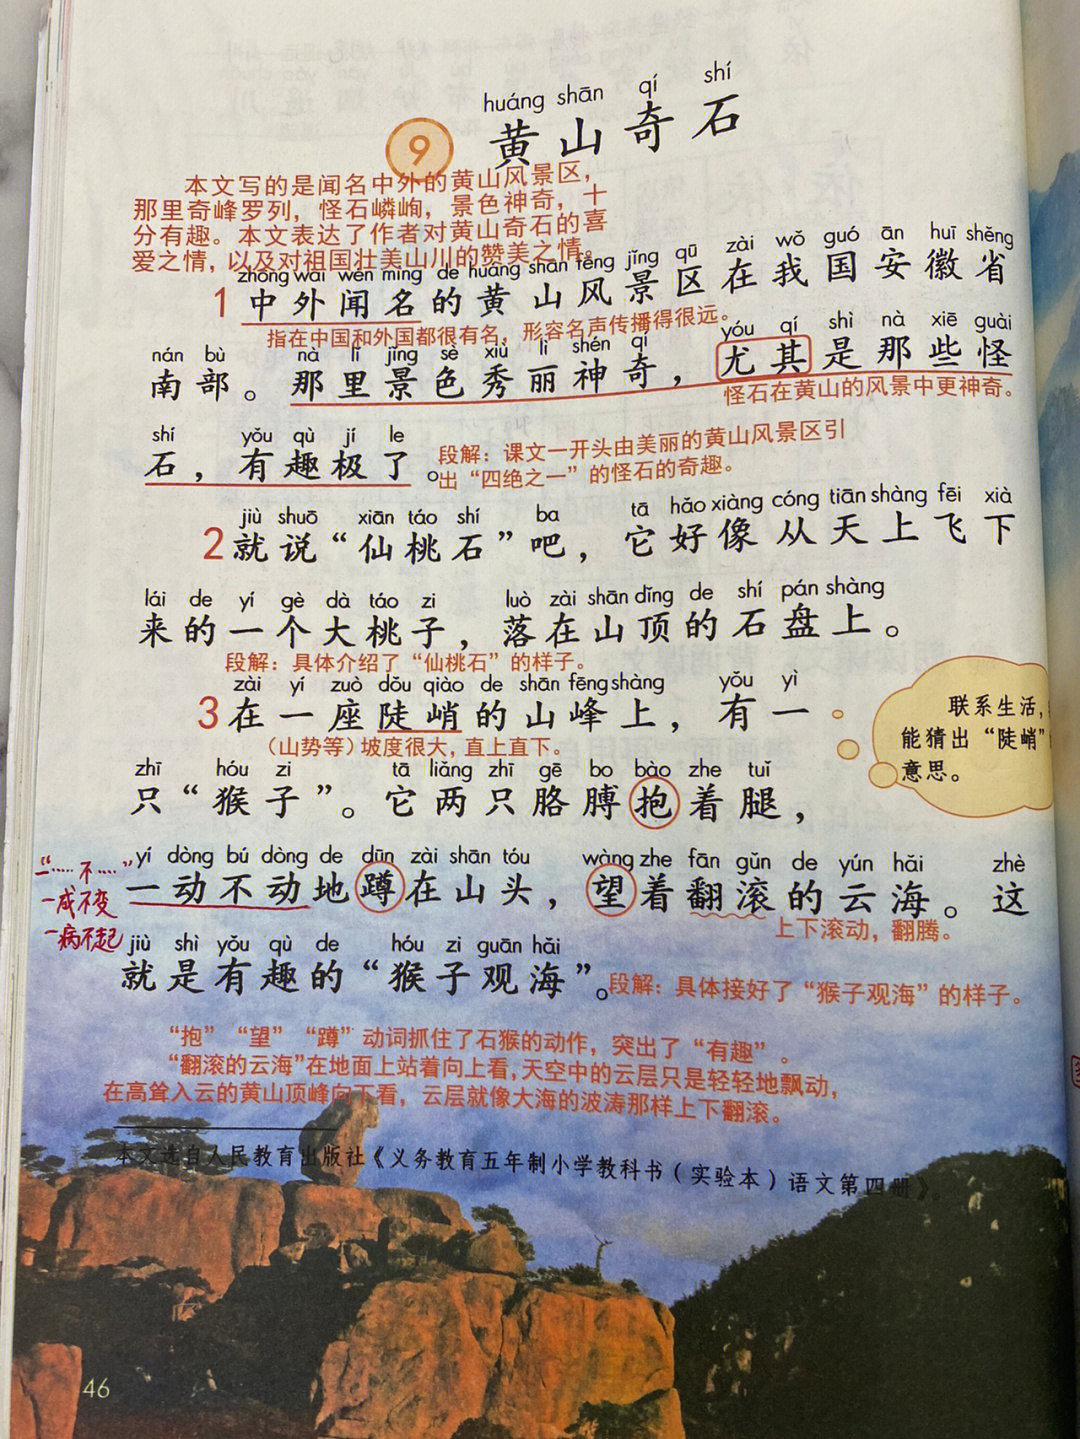 huáng shān qí shí
9 黄山奇石
本文写的是闻名中外的黄山风景区，
那里奇峰罗列，怪石嶙峋，景色神奇，十
分有趣。本文表达了作者对黄山奇石的喜
爱之情，以及对祖国壮美山川的赞美之情。
zhōng wài wén míng de huáng shān fēng jǐng qū zài wǒ guó ān huī shěng
1 中外闻名的黄山风景区在我国安徽省
指在中国和外国都很有名，形容名声传播得很远。
nán bù nà lǐ jǐng sè xiù lì shén qí yóu qí shì nà xiē guài
南部。那里景色秀丽神奇，尤其是那些怪
怪石在黄山的风景中更神奇。
shí yǒu qù jí le
石，有趣极了。
段解：课文一开头由美丽的黄山风景区引
出“四绝之一”的怪石的奇趣。
jiù shuō xiān táo shí ba tā hǎo xiàng cóng tiān shàng fēi xià
2 就说“仙桃石”吧，它好像从天上飞下
lái de yí gè dà táo zi luò zài shān dǐng de shí pán shàng
来的一个大桃子，落在山顶的石盘上。
段解：具体介绍了“仙桃石”的样子。
zài yí zuò dǒu qiào de shān fēng shàng yǒu yì
3 在一座陡峭的山峰上，有一
（山势等）坡度很大，直上直下。
联系生活，
能猜出“陡峭”
意思。
zhī hóu zi tā liǎng zhī gē bo bào zhe tuǐ
只“猴子”。它两只胳膊抱着腿，
“一……不……”
一成不变
一病不起
yí dòng bú dòng de dūn zài shān tóu wàng zhe fān gǔn de yún hǎi zhè
一动不动地蹲在山头，望着翻滚的云海。这
上下滚动，翻腾。
jiù shì yǒu qù de hóu zi guān hǎi
就是有趣的“猴子观海”。
段解：具体接好了“猴子观海”的样子。
“抱”“望”“蹲”动词抓住了石猴的动作，突出了“有趣”。
“翻滚的云海”在地面上站着向上看，天空中的云层只是轻轻地飘动，
在高耸入云的黄山顶峰向下看，云层就像大海的波涛那样上下翻滚。
本文选自人民教育出版社《义务教育五年制小学教科书（实验本）语文第四册》。
46